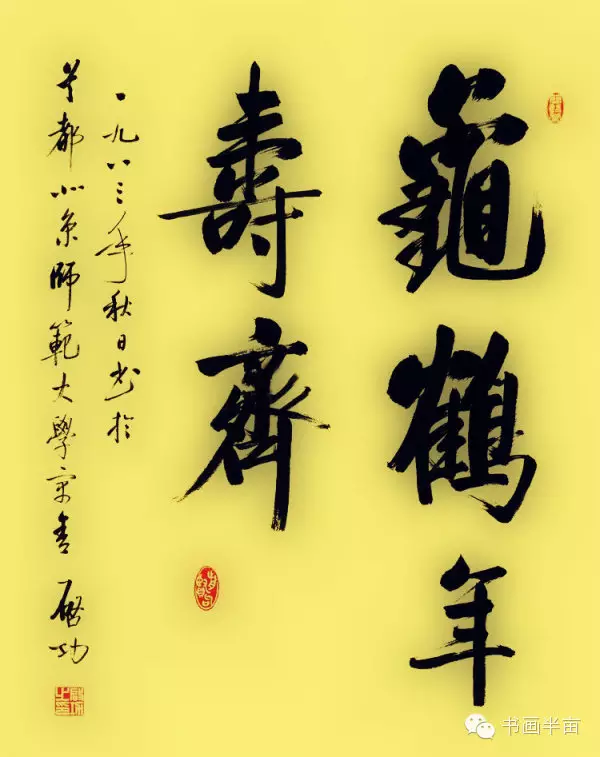 龜鶴年
壽齊
一九八三年秋日书於
首都北京師範大學 啓功
书画半亩